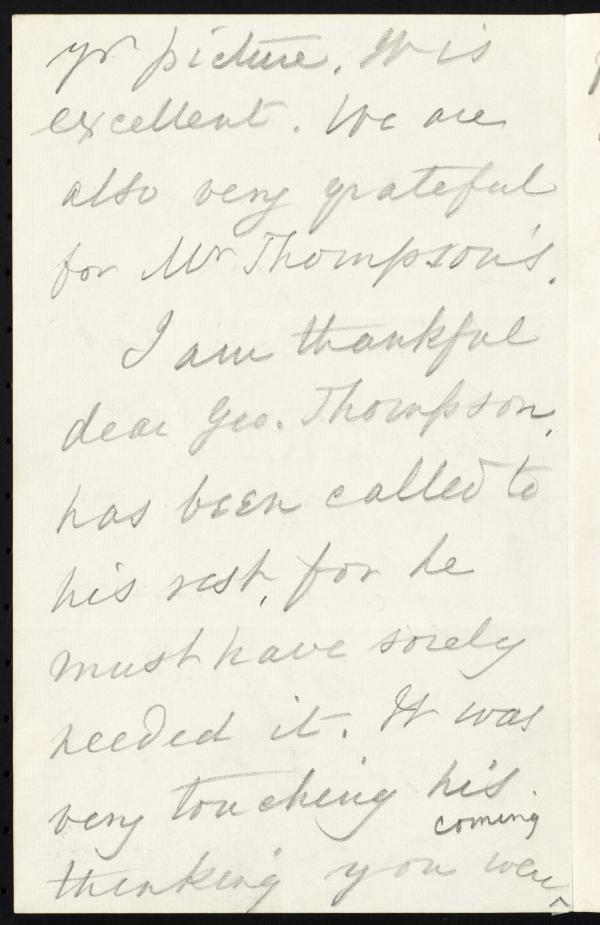 yr picture. It is
excellent. We are
also very grateful
for Mr Thompson's.
I am thankful
dear Geo. Thompson,
has been called to
his rest, for he
must have sorely
needed it. It was
very touching his
coming
thinking you were